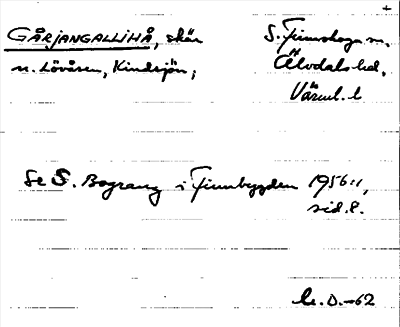 +
GÅRJANGALLIHÅ, skär
n. Lövåsen, Kindsjön,
S. Finnskoga sn,
Älvdals hd,
Värml. l
Se S. Bograng i Finnbygden 1956:1,
sid. 8.
D. -62